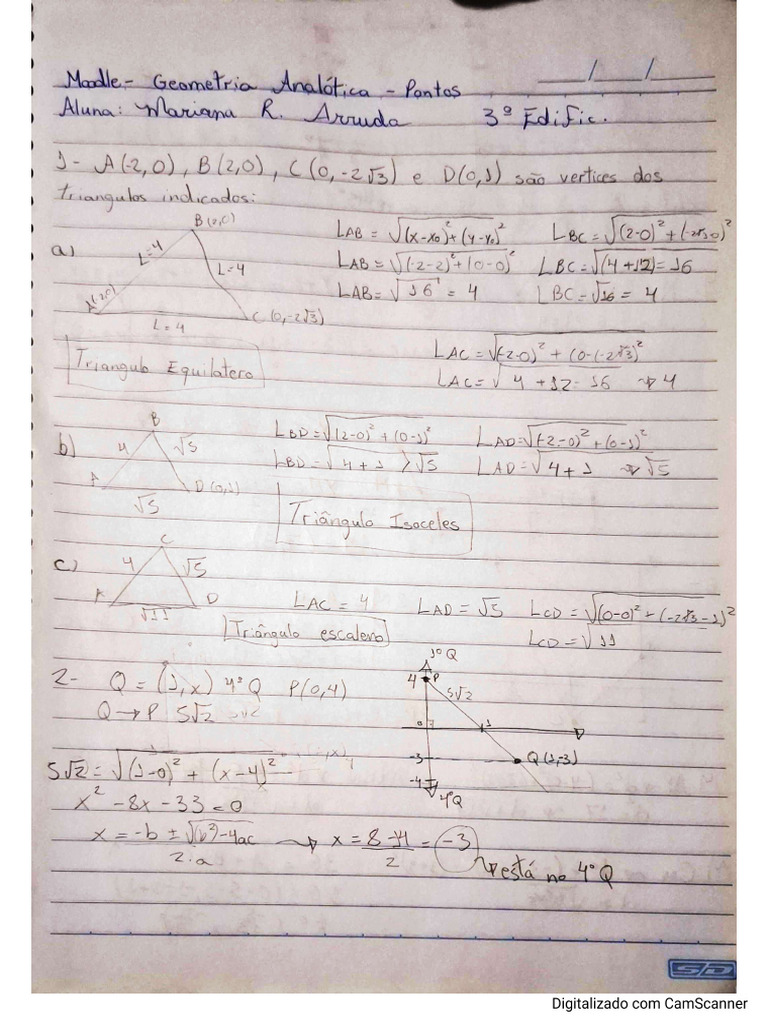 Moodle - Geometria Analótica - Pontos
__/__/__
Aluna: Mariana R. Arruda 3º Edific.
1- A(-2,0), B(2,0), C(0,-2√3) e D(0,1) são vertices dos
triangulos indicados:
a)
B(2,0)
L=4
L=4
A(-2,0)
C(0,-2√3)
L=4
LAB = √(x-x0)²+(y-y0)²
LBC = √(2-0)²+(-2√3-0)²
LAB = √(-2-2)²+(0-0)²
LBC = √(4+12)=16
LAB = √16 = 4
LBC = √16 = 4
Triangulo Equilatero
LAC = √(-2-0)²+(0-(-2√3)²
LAC = √4+12=16 → 4
b)
B
4
√5
A
D(0,1)
√5
LBD = √(2-0)²+(0-1)²
LAD = √(-2-0)²+(0-1)²
LBD = √4+1 > √5
LAD = √4+1 → √5
Triângulo Isoceles
c)
C
4
√5
A
D
√11
LAC = 4
LAD = √5
LCD = √(0-0)²+(-2√3-1)²
LCD = √11
Triângulo escaleno
2- Q = (1,x) 4ºQ P(0,4)
Q → P 5√2
1ºQ
4
P
5√2
0
1
-3
Q(1,-3)
-4
4ºQ
5√2 = √(1-0)²+(x-4)²
x²-8x-33=0
x = -b ± √(b²)-4ac / 2.a → x = 8-14 / 2 = -3
está no 4ºQ
SD
Digitalizado com CamScanner